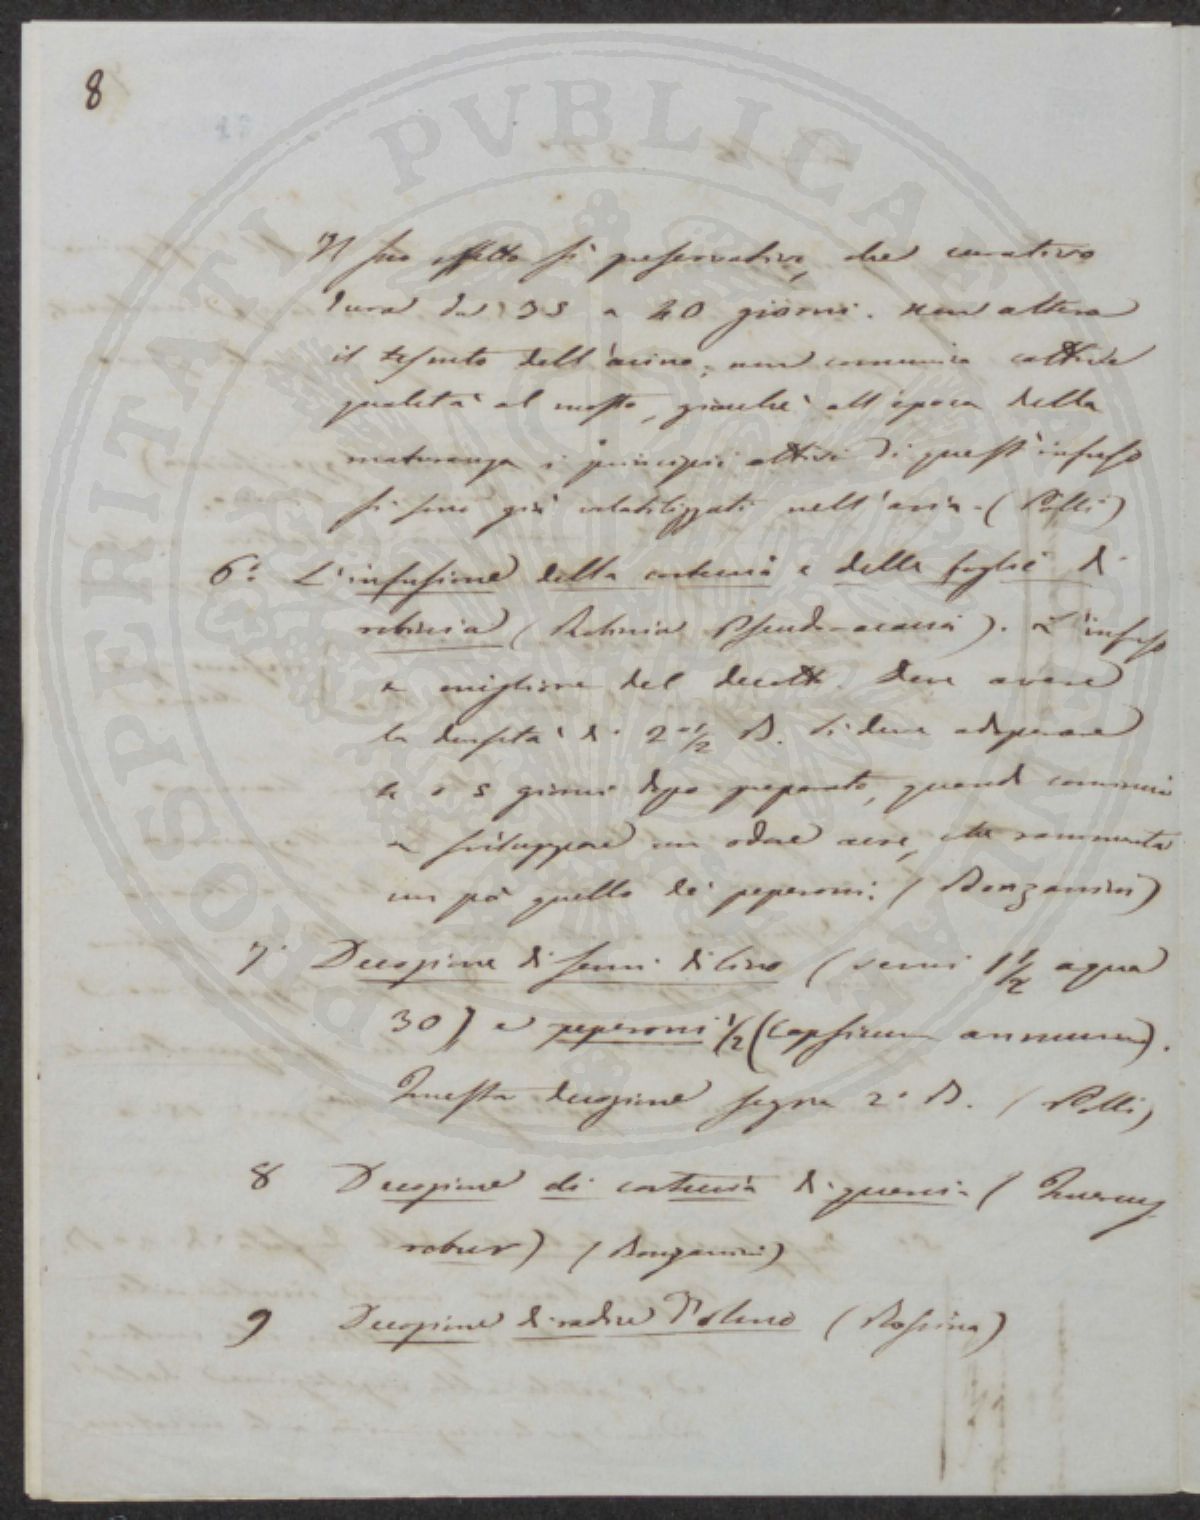 8
Il suo effetto sì preservativo, che curativo
dura da 35 a 40 giorni. non altera
il tessuto dell'acino, non comunica cattive
qualità al mosto, giacché all'epoca della
maturanza i principii attivi di quest'infuso
si sono già volatilizzati nell'aria - (Polli)
6° L'infusione della corteccia e della foglie di
robinia (Robinia Pseudo-acacia). L'infuso
è migliore del decotto. Deve avere
la densità di 2°½ B. Si deve adoperare
4 o 5 giorni dopo preparato, quando comincia
a sviluppare un odore acre, che rammenta
un pò quello dei peperoni. (Bonzanini)
7° Decozione di semi di lino (semi 1½ acqua
30) e peperoni ½ (Capsicum annuum).
Questa decozione segna 2° B. (Polli)
8 Decozione di corteccia di quercia (Quercus
robur) (Bonzanini)
9 Decozione di radice (Rossina)
PROSPERITATI PVBLICAE